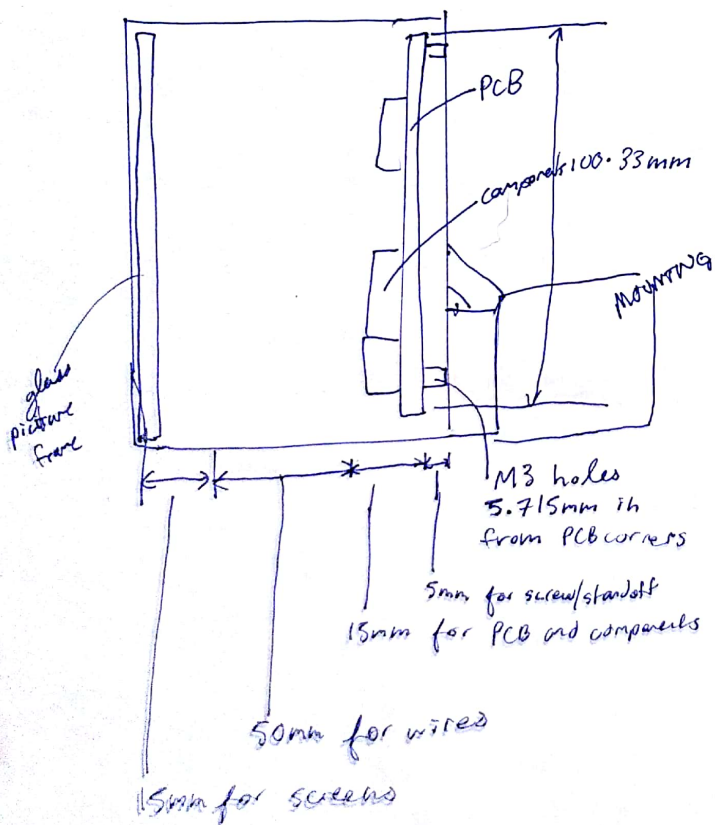 PCB
components 100.33mm
MOUNTING
glass
picture
frame
M3 holes
5.715mm in
from PCB corners
5mm for screw/standoff
15mm for PCB and components
50mm for wires
15mm for screens